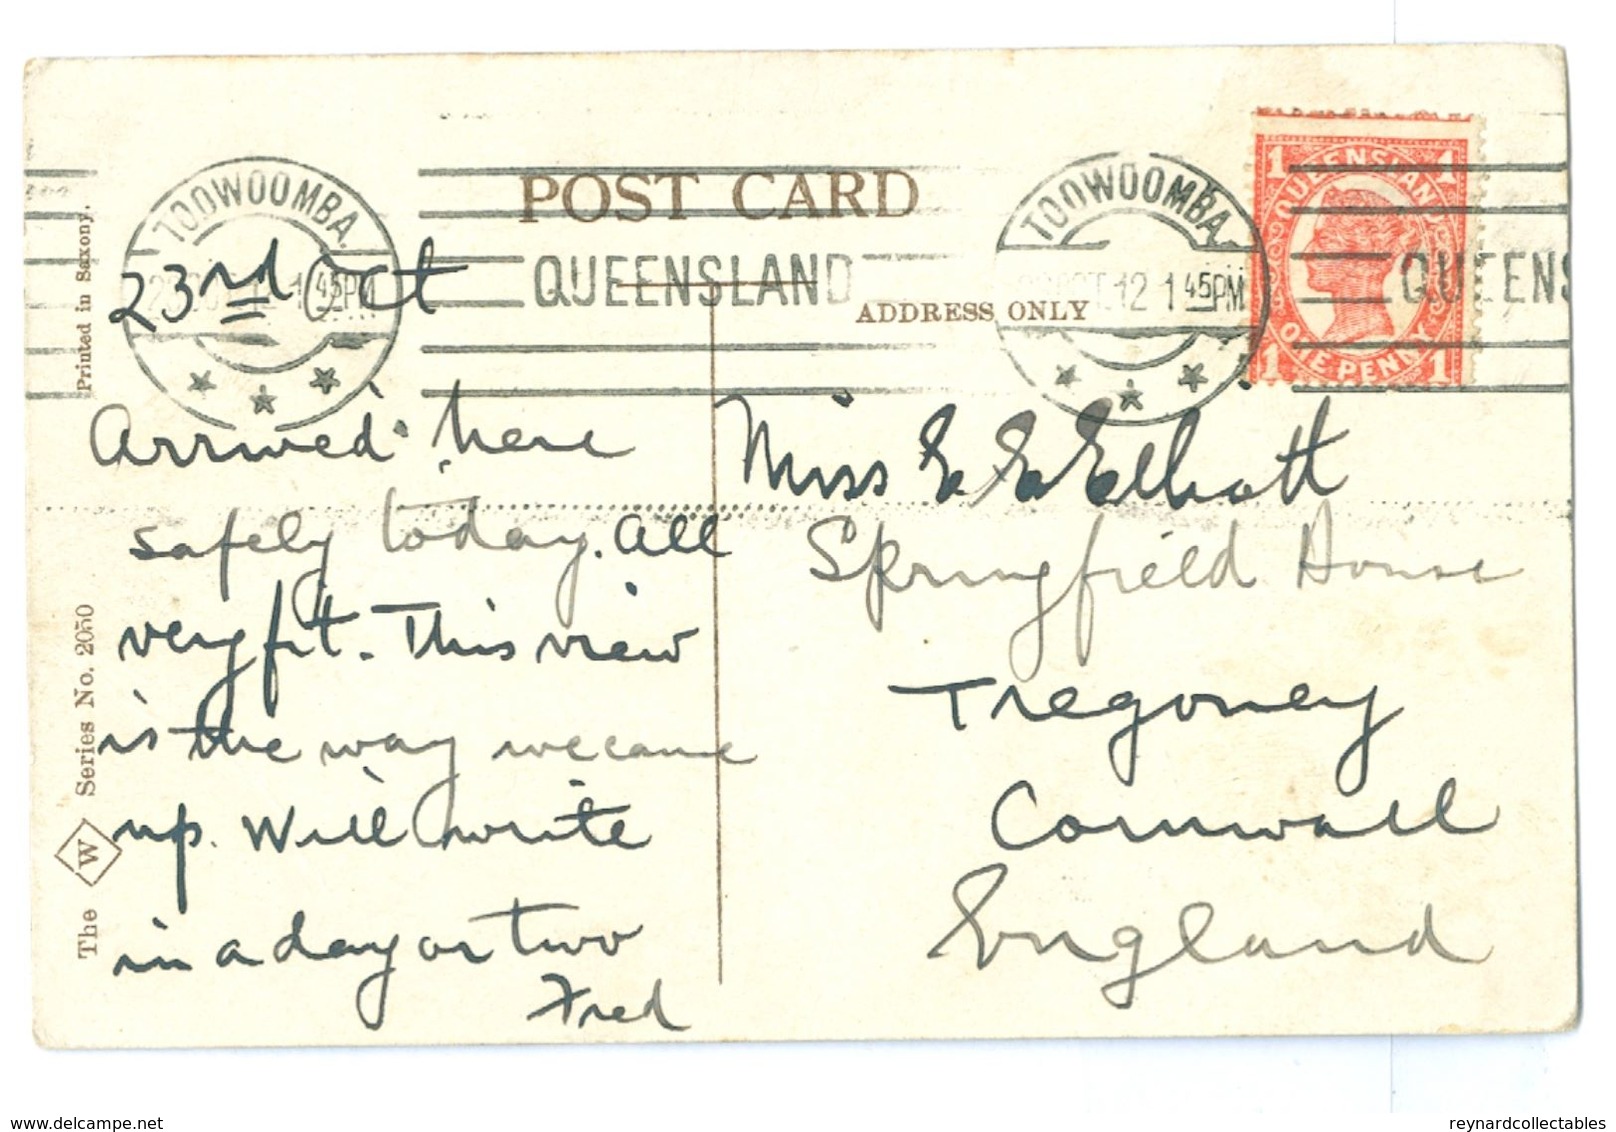 POST CARD
TOOWOOMBA.
QUEENSLAND
ADDRESS ONLY
TOOWOOMBA.
OCT 12 1 45PM
QUEENS
1 QUEENSLAND 1
1 ONE PENNY 1
Printed in Saxony.
The W Series No. 2050
23rd Oct
Arrived here
safely today. All
very fit. This view
is the way we came
up. Will write
in a day or two
Fred
Miss E. E. Elliott
Springfield House
Tregoney
Cornwall
England
delcampe.net
reynardcollectables